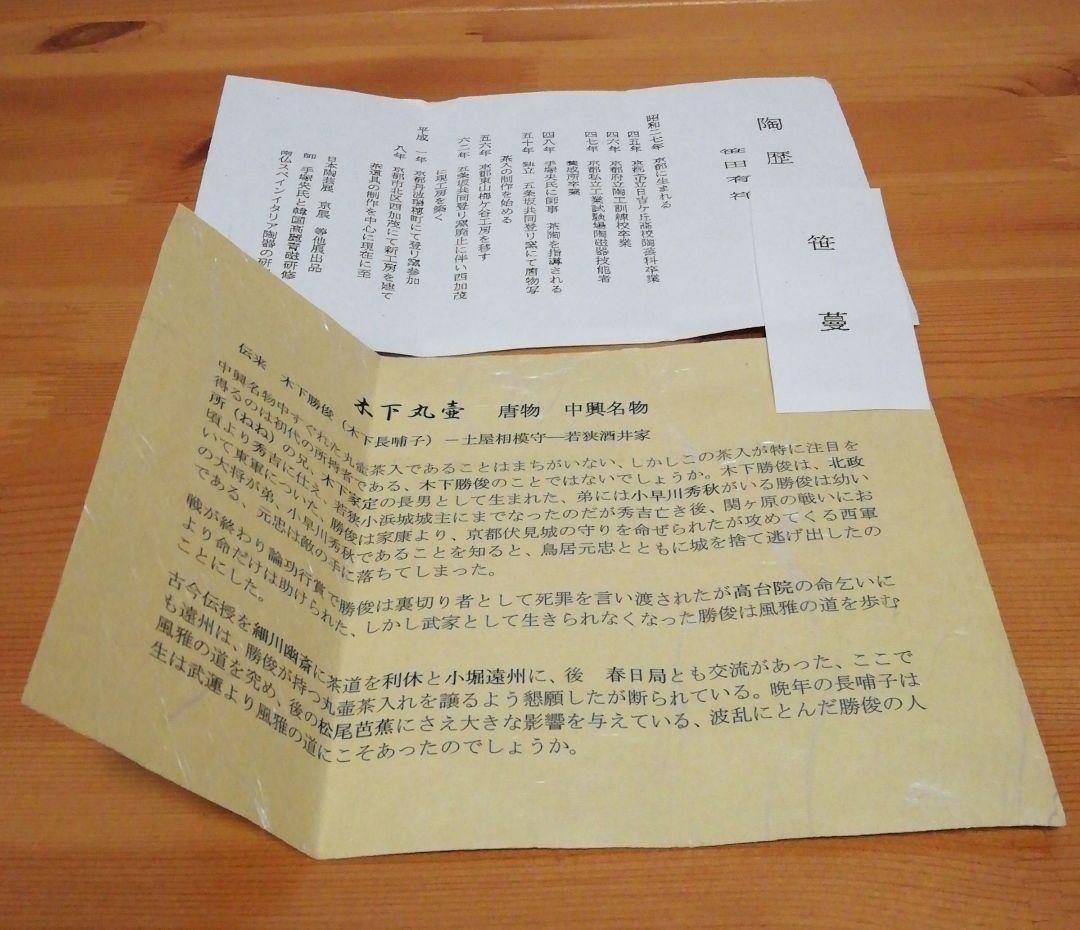 陶歴
笹田有祥
昭和二七年 京都に生まれる
四五年 京都市立日吉ケ丘高校陶芸科卒業
四六年 京都府立陶工訓練校卒業
四七年 京都私立工業試験場陶磁器技能者
養成所卒業
四八年 手塚央氏に師事 茶陶を指導される
五十年 独立 五条坂共同登り窯にて唐物写
茶入の制作を始める
五六年 京都東山梅ケ谷工房を移す
六二年 五条坂共同登り窯廃止に伴い西加茂
に現工房を築く
平成 一年 京都丹波瑞穂町にて登り窯参加
八年 京都市北区西加茂にて新工房を建て
茶道具の制作を中心に現在に至
日本陶芸展 京展 等他展出品
師 手塚央氏と韓国高麗青磁研修
南仏スペインイタリア陶器の研
笹 蔓
木下丸壷 唐物 中興名物
伝来 木下勝俊(木下長哺子)−土屋相模守―若狭酒井家
中興名物中すぐれた丸壷茶入であることはまちがいない、しかしこの茶入が特に注目を
得るのは初代の所持者である、木下勝俊のことではないでしょうか。木下勝俊は、北政
所(ねね)の兄、木下家定の長男として生まれた、弟には小早川秀秋がいる勝俊は幼い
頃より秀吉に仕え、若狭小浜城城主にまでなったのだが秀吉亡き後、関ヶ原の戦いにお
いて東軍についた、勝俊は家康より、京都伏見城の守りを命ぜられたが攻めてくる西軍
の大将が弟、小早川秀秋であることを知ると、鳥居元忠とともに城を捨て逃げ出したの
である、元忠は敵の手に落ちてしまった。
戦が終わり論功行賞で勝俊は裏切り者として死罪を言い渡されたが高台院の命乞いに
より命だけは助けられた、しかし武家として生きられなくなった勝俊は風雅の道を歩む
ことにした。
古今伝授を細川幽斎に茶道を利休と小堀遠州に、後 春日局とも交流があった、ここで
も遠州は、勝俊が持つ丸壷茶入れを譲るよう懇願したが断られている。晩年の長哺子は
風雅の道を究め、後の松尾芭蕉にさえ大きな影響を与えている、波乱にとんだ勝俊の人
生は武運より風雅の道にこそあったのでしょうか。